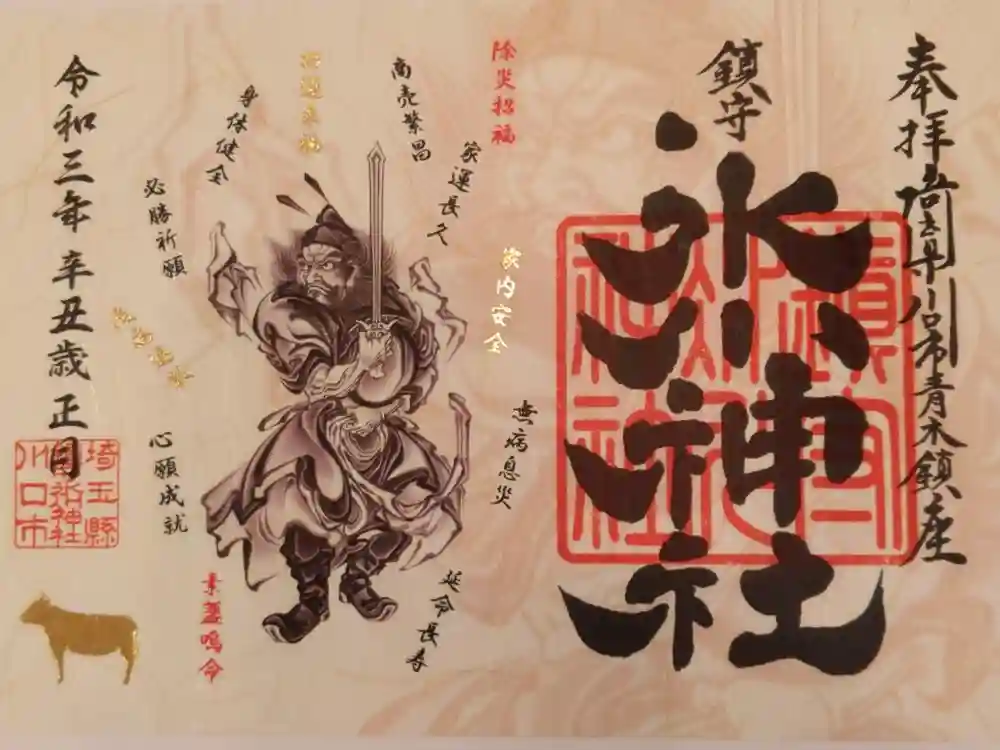 奉拝 埼玉県川口市青木鎮座
鎮守
氷川神社
鎮守氷川神社
除災招福
家運長久
家内安全
無病息災
延命長寿
商売繁昌
身体健全
必勝祈願
心願成就
素盞嗚命
令和三年 辛丑歳 正月
埼玉縣
鎮守氷川神社
川口市